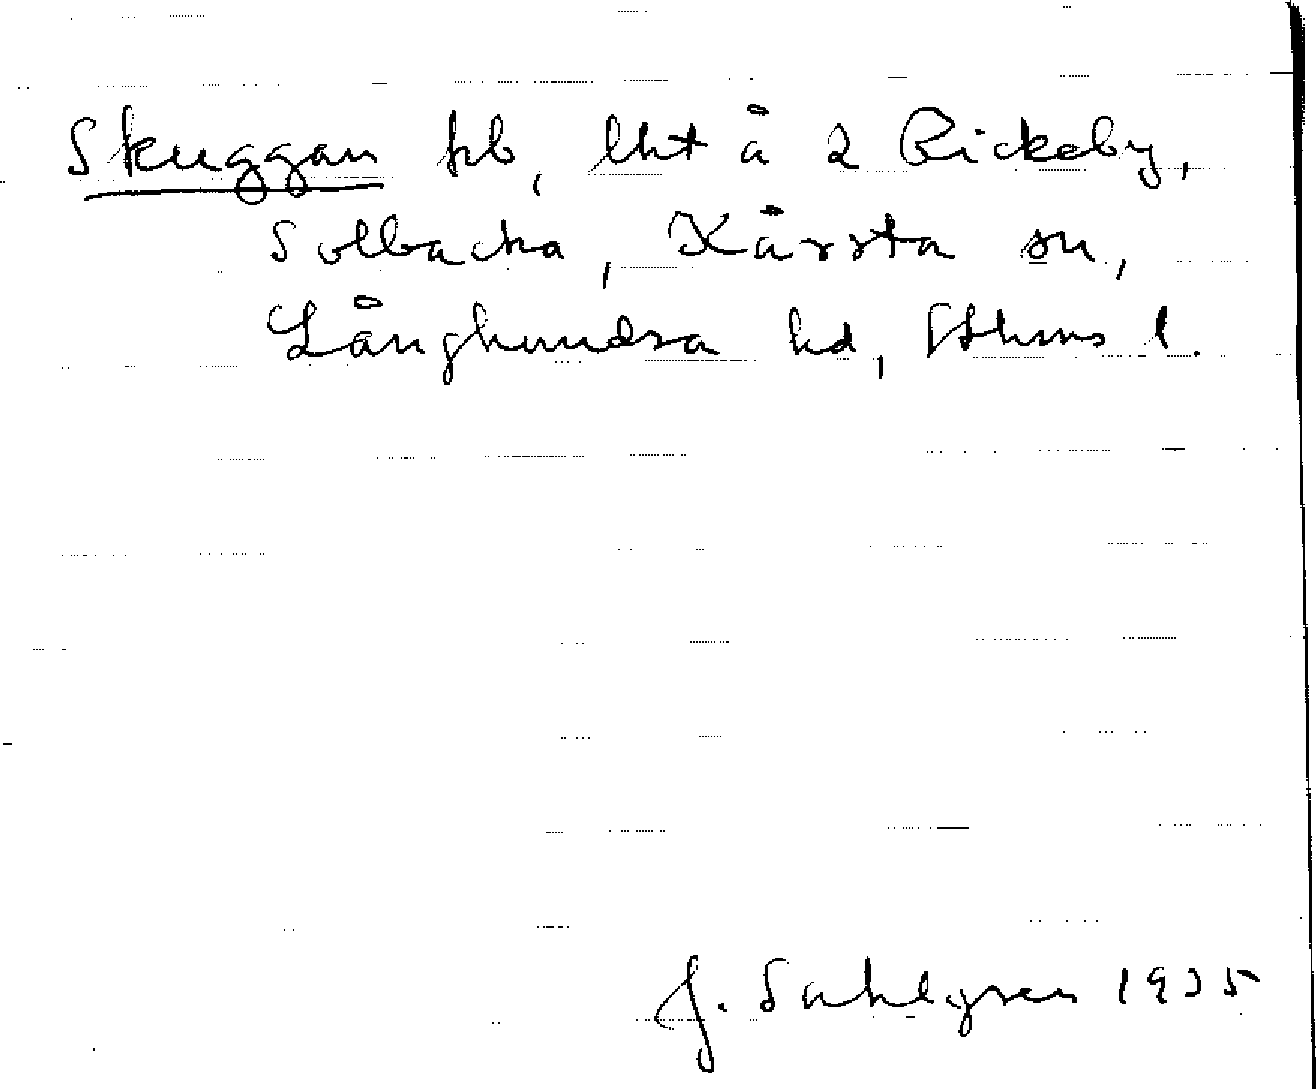 Skuggan frb, lht å 2 Rickeby,
Solbacka, Kårsta sn,
Långhundra hd, Sthms l.
J. Sahlgren 1935